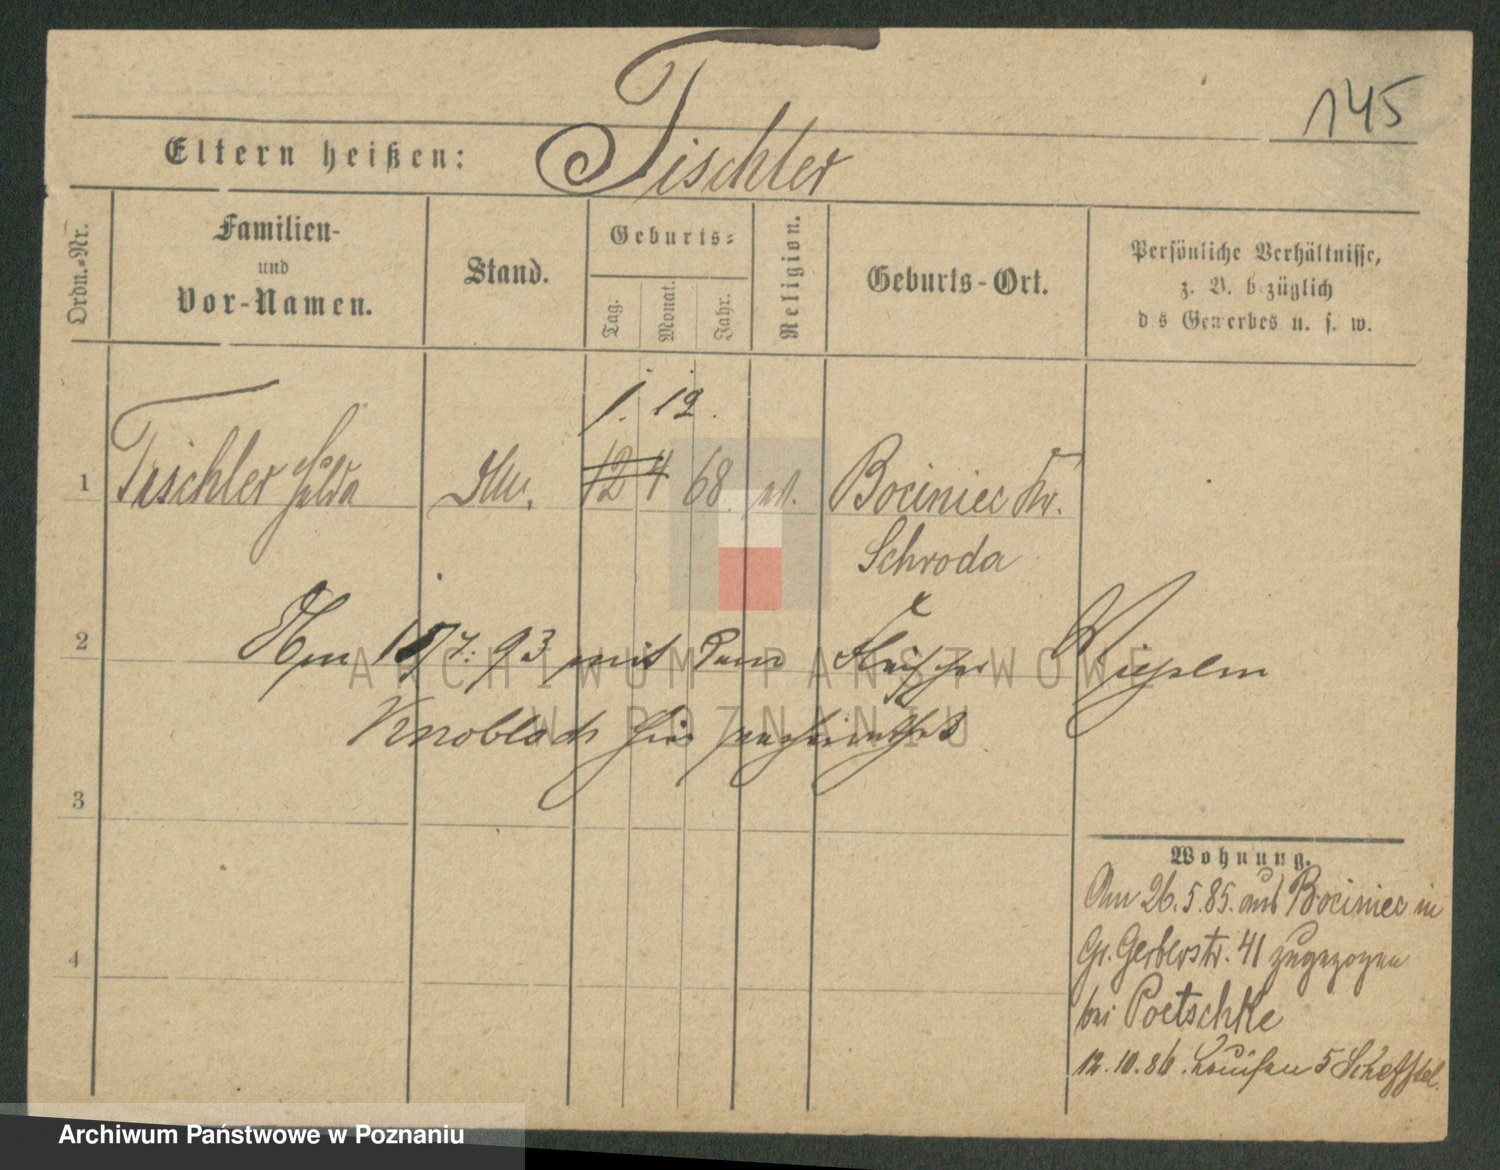 145
Eltern heißen: Tischler
Ordn.-Nr.
Familien-
und
Vor-Namen.
Stand.
Geburts-
Tag.
Monat.
Jahr.
Religion.
Geburts-Ort.
Persönliche Verhältnisse,
z. B. bezüglich
des Gewerbes u. s. w.
1. 12.
1 Tischler Hulda 12 4 68 ev. Bociniec Kr.
Schroda
2
Am 15/7. 93 mit dem Fleischer
Knobloch hier verheirathet
3
4
Wohnung.
Am 26.5.85. aus Bociniec in
Gr. Gerberstr. 41 zugezogen
bei Poetschke
12.10.86. Louisen 5
ARCHIWUM PAŃSTWOWE
W POZNANIU
Archiwum Państwowe w Poznaniu